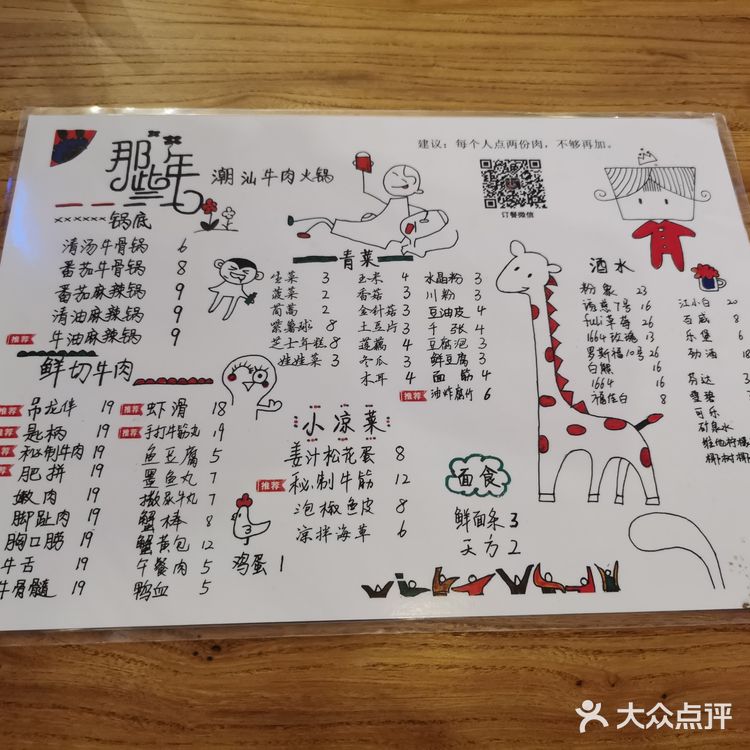 建议：每个人点两份肉，不够再加。
那些年
潮汕牛肉火锅
订餐微信
××××××锅底
清汤牛骨锅 6
番茄牛骨锅 8
番茄麻辣锅 9
清油麻辣锅 9
推荐 牛油麻辣锅 9
鲜切牛肉
推荐 吊龙伴 19
推荐 匙柄 19
推荐 秘制牛肉 19
推荐 肥拼 19
嫩肉 19
脚趾肉 19
胸口捞 19
牛舌 19
牛骨髓 19
推荐 虾滑 18
推荐 手打牛筋丸 19
鱼豆腐 5
墨鱼丸 7
撒尿牛丸 7
蟹棒 8
蟹黄包 12
午餐肉 5
鸭血 5
鸡蛋 1
青菜
生菜 3
菠菜 2
茼蒿 2
紫薯球 8
芝士年糕 8
娃娃菜 3
玉米 4
香菇 3
金针菇 4
土豆片 3
莲藕 4
冬瓜 3
木耳 4
水晶粉 3
川粉 3
豆油皮 4
千张 4
豆腐泡 3
鲜豆腐 3
面筋 4
推荐 油炸腐竹 6
小凉菜
姜汁松花蛋 8
推荐 秘制牛筋 12
泡椒鱼皮 8
凉拌海草 6
面食
鲜面条 3
天方 2
酒水
粉象 23
诱惑7号 16
fuli草莓 26
1664玫瑰 13
罗斯福10号 26
白熊 16
1664 16
福佳白 8
江小白 20
百威 8
乐堡 6
劲酒
芬达 3
雪碧
可乐
矿泉水
维他柠檬
椰树椰
大众点评